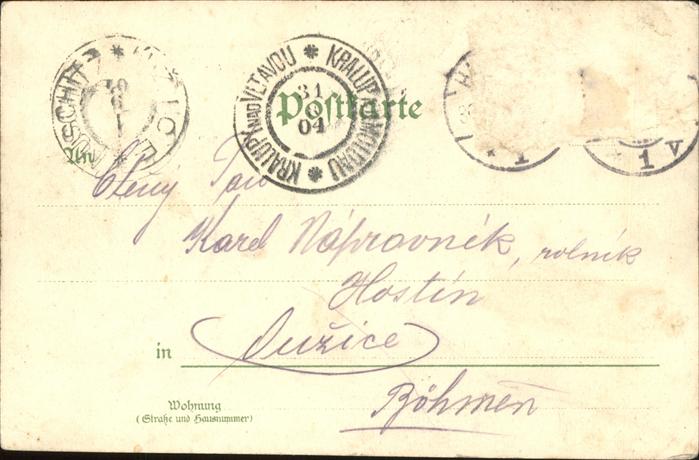 KRALUPY NAD VLTAVOU * KRALUP A/MOLDAU *
31
04
Postkarte
1
1 V
An
Ctěný Pan
Karel Nápravník, rolník
Hostín
in Oužice
Böhmen
Wohnung
(Straße und Hausnummer)